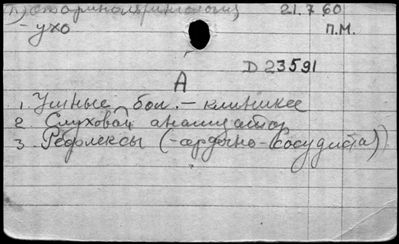 Оториноларингология 21.7.60
- ухо п.м.
D 23591
А
1. Ушные бол. - клиника
2. Слуховой анализатор
3. Рефлексы (-сердечно-сосудиста))